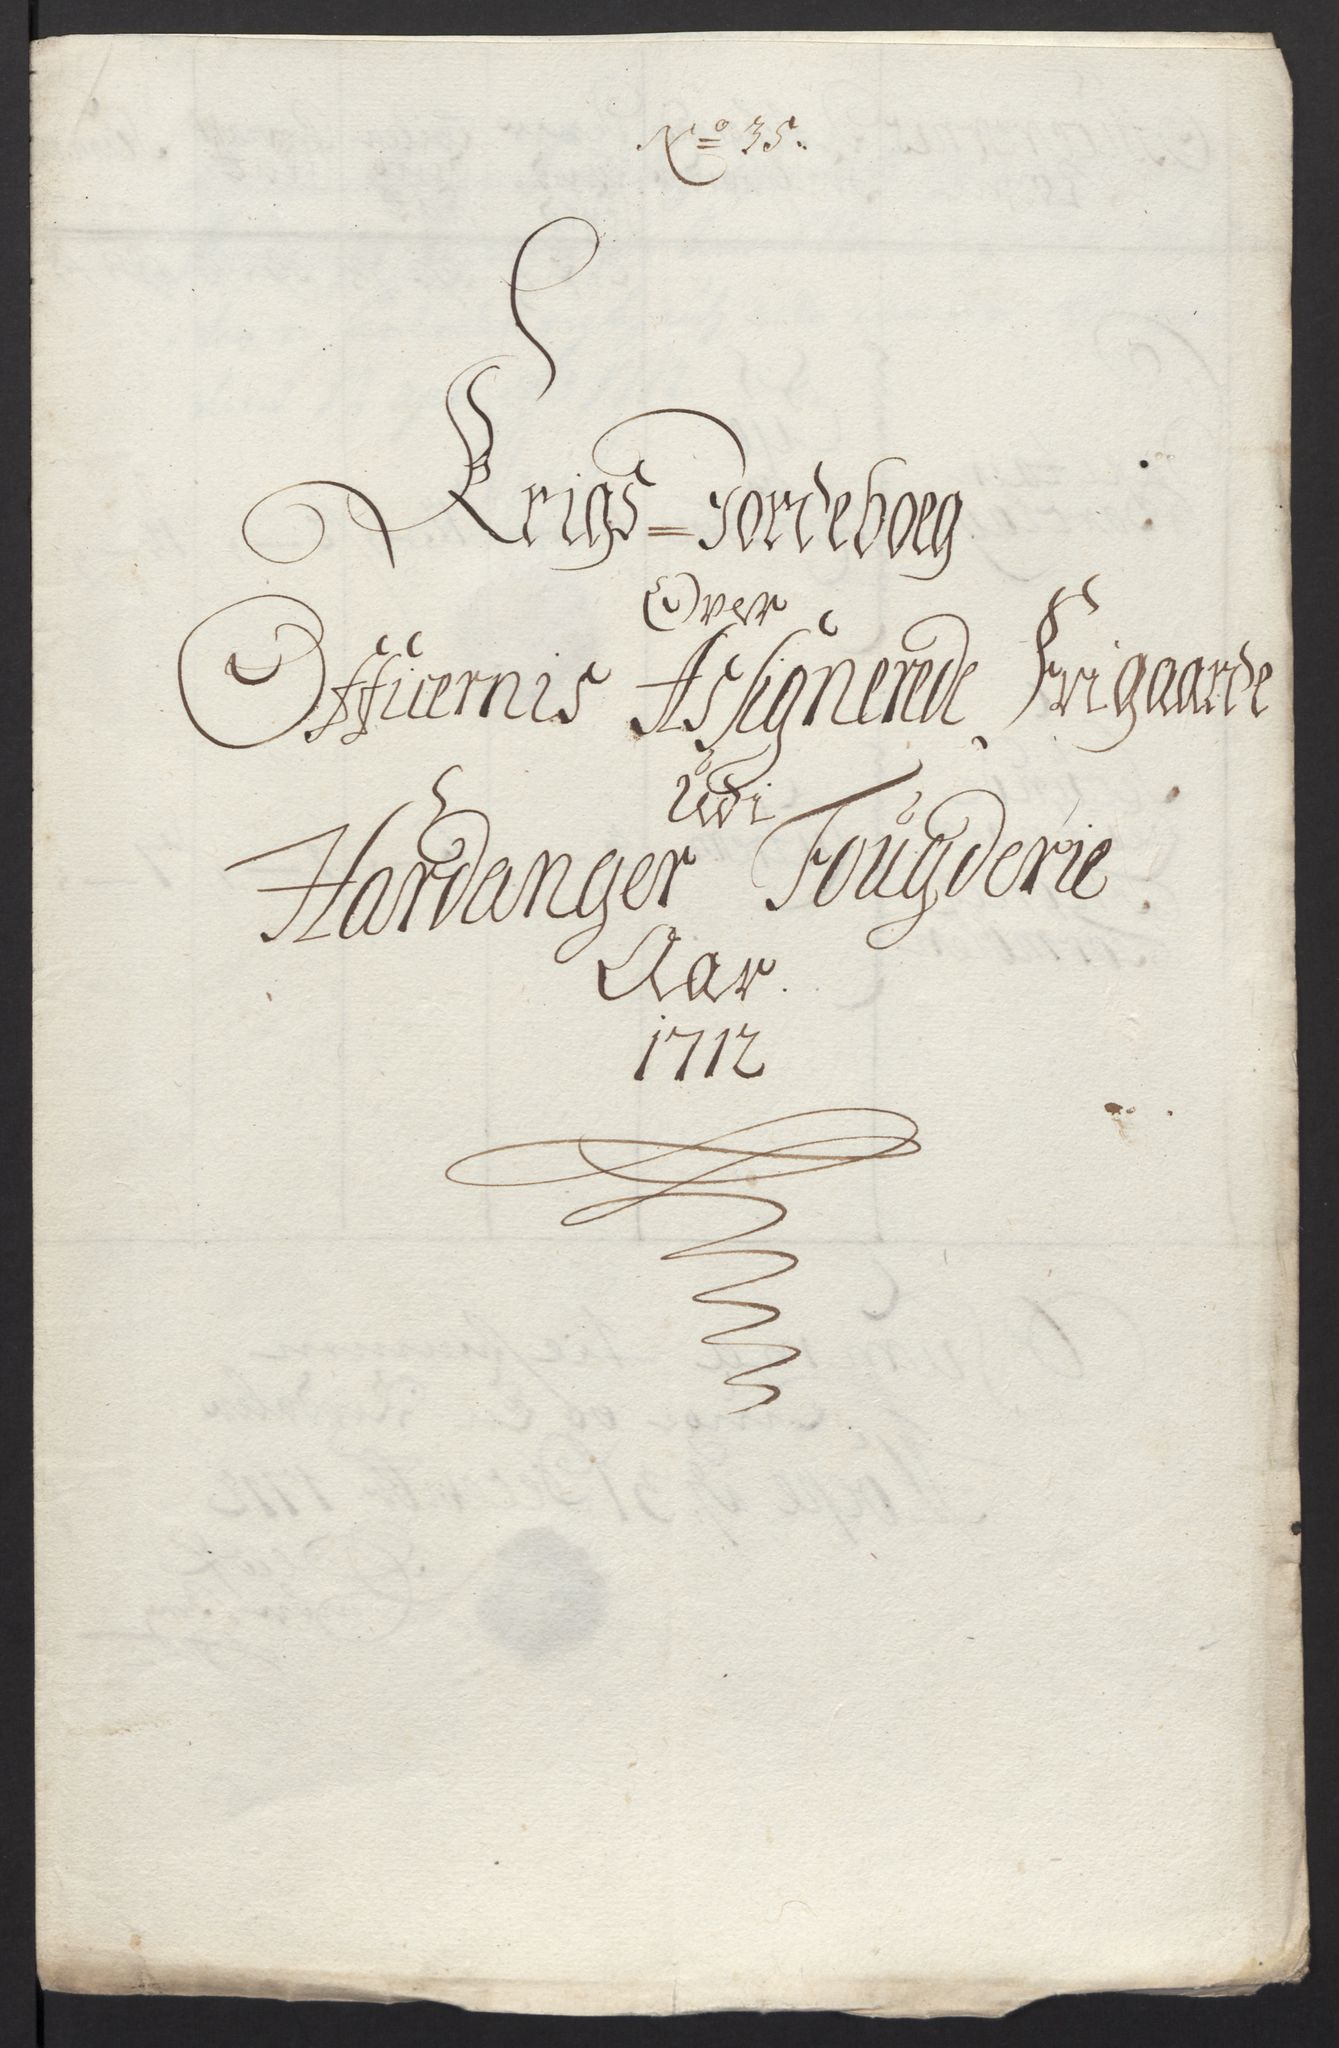 No 35.
Krigs=Jordeboeg
Over
Officernis Assignerede Frigaarde
Udi
Hardanger Fougderie
Aar.
1712